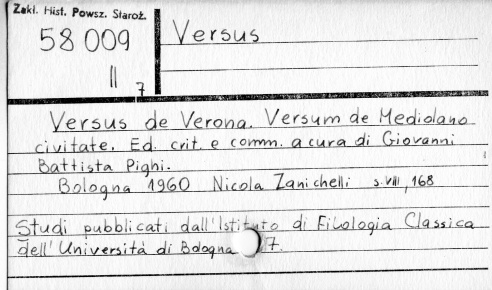 Zakł. Hist. Powsz. Staroż.
58 009
II 7
Versus
Versus de Verona. Versum de Mediolano
civitate. Ed. crit. e comm. a cura di Giovanni
Battista Pighi.
Bologna 1960 Nicola Zanichelli s. VIII, 168
Studi pubblicati dall'Istituto di Filologia Classica
dell'Università di Bologna 7.